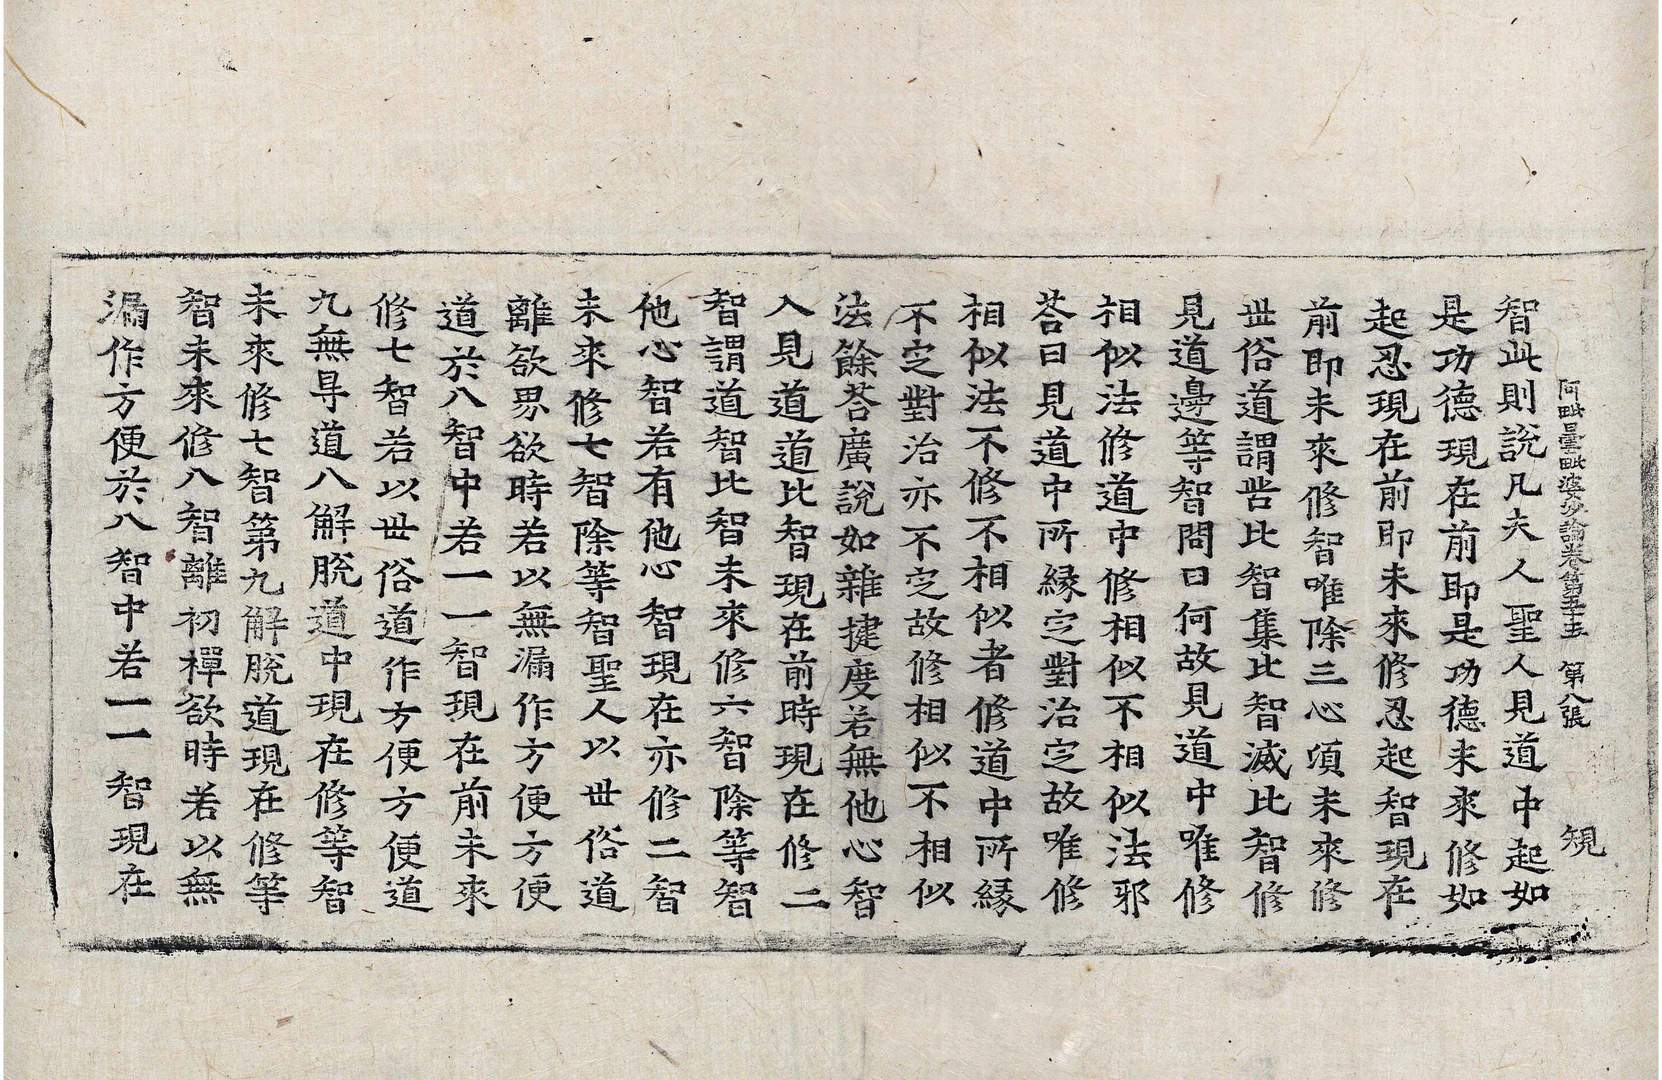 阿毗曇毗婆沙論卷第五十五 第八張 䂓
智此則說凡夫人聖人見道中起如
是功德現在前即是功德未來修如
起忍現在前即未來修忍起智現在
前即未來修智唯除三心頃未來修
世俗道謂苦比智集比智滅比智修
見道邊等智問曰何故見道中唯修
相似法修道中修相似不相似法耶
荅曰見道中所緣定對治定故唯修
相似法不修不相似者修道中所緣
不定對治亦不定故修相似不相似
法餘荅廣說如雜揵度若無他心智
入見道道比智現在前時現在修二
智謂道智比智未來修六智除等智
他心智若有他心智現在亦修二智
未來修七智除等智聖人以世俗道
離欲界欲時若以無漏作方便方便
道於八智中若一一智現在前未來
修七智若以世俗道作方便方便道
九無㝵道八解脫道中現在修等智
未來修七智第九解脫道現在修等
智未來修八智離初禪欲時若以無
漏作方便於八智中若一一智現在